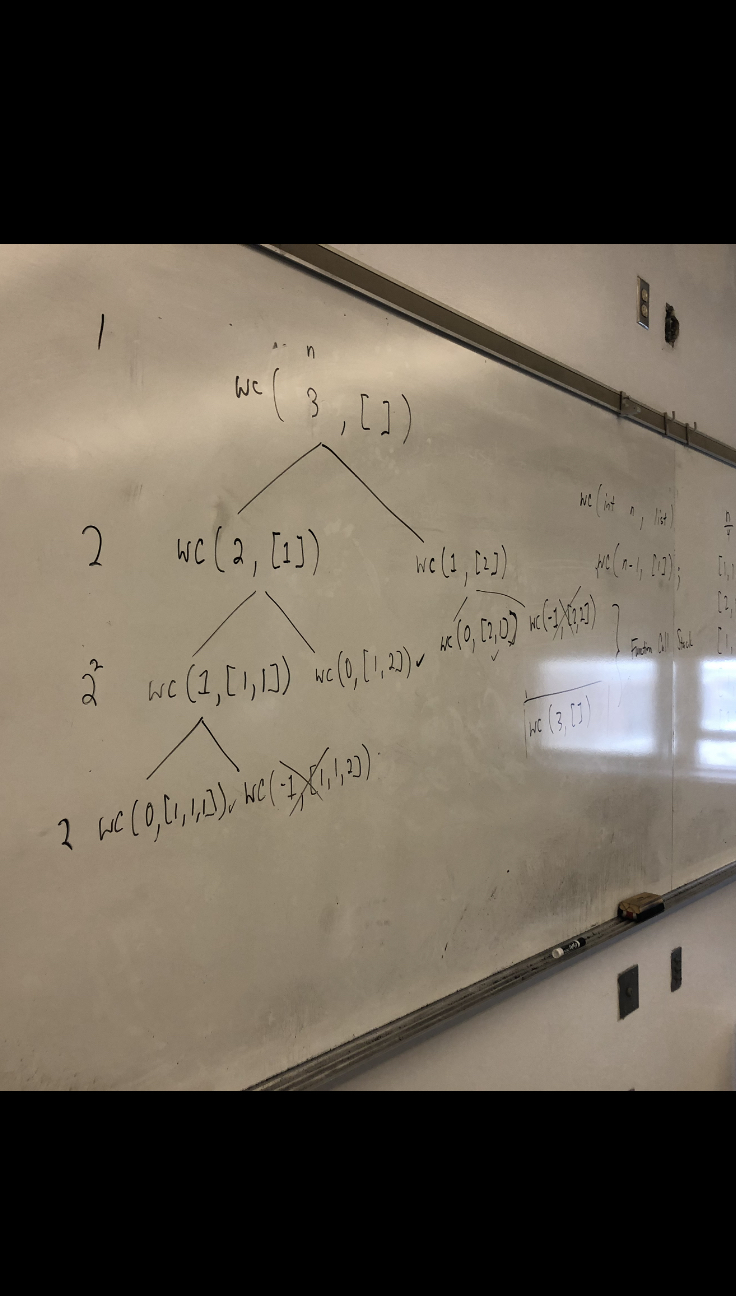 1
n
wc( 3, [ ] )
2 wc(2, [1]) wc(1, [2])
2² wc(1,[1,1]) wc(0,[1,2]) ✓ wc(0, [2,1]) ✓ wc(-1, [2,2])
2 wc(0,[1,1,1]) ✓ wc(-1,[1,1,2])
wc(int n, list)
wc(n-1, [1]);
} Function Call Stack
wc(3,[])
n
[1,
[2,
[1,